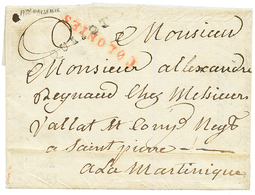 COLONIES
Monsieur
Monsieur allexandre
Reynaud Chez Messieurs
Vallat et Comp Negt
a Saint pierre
a La Martinique